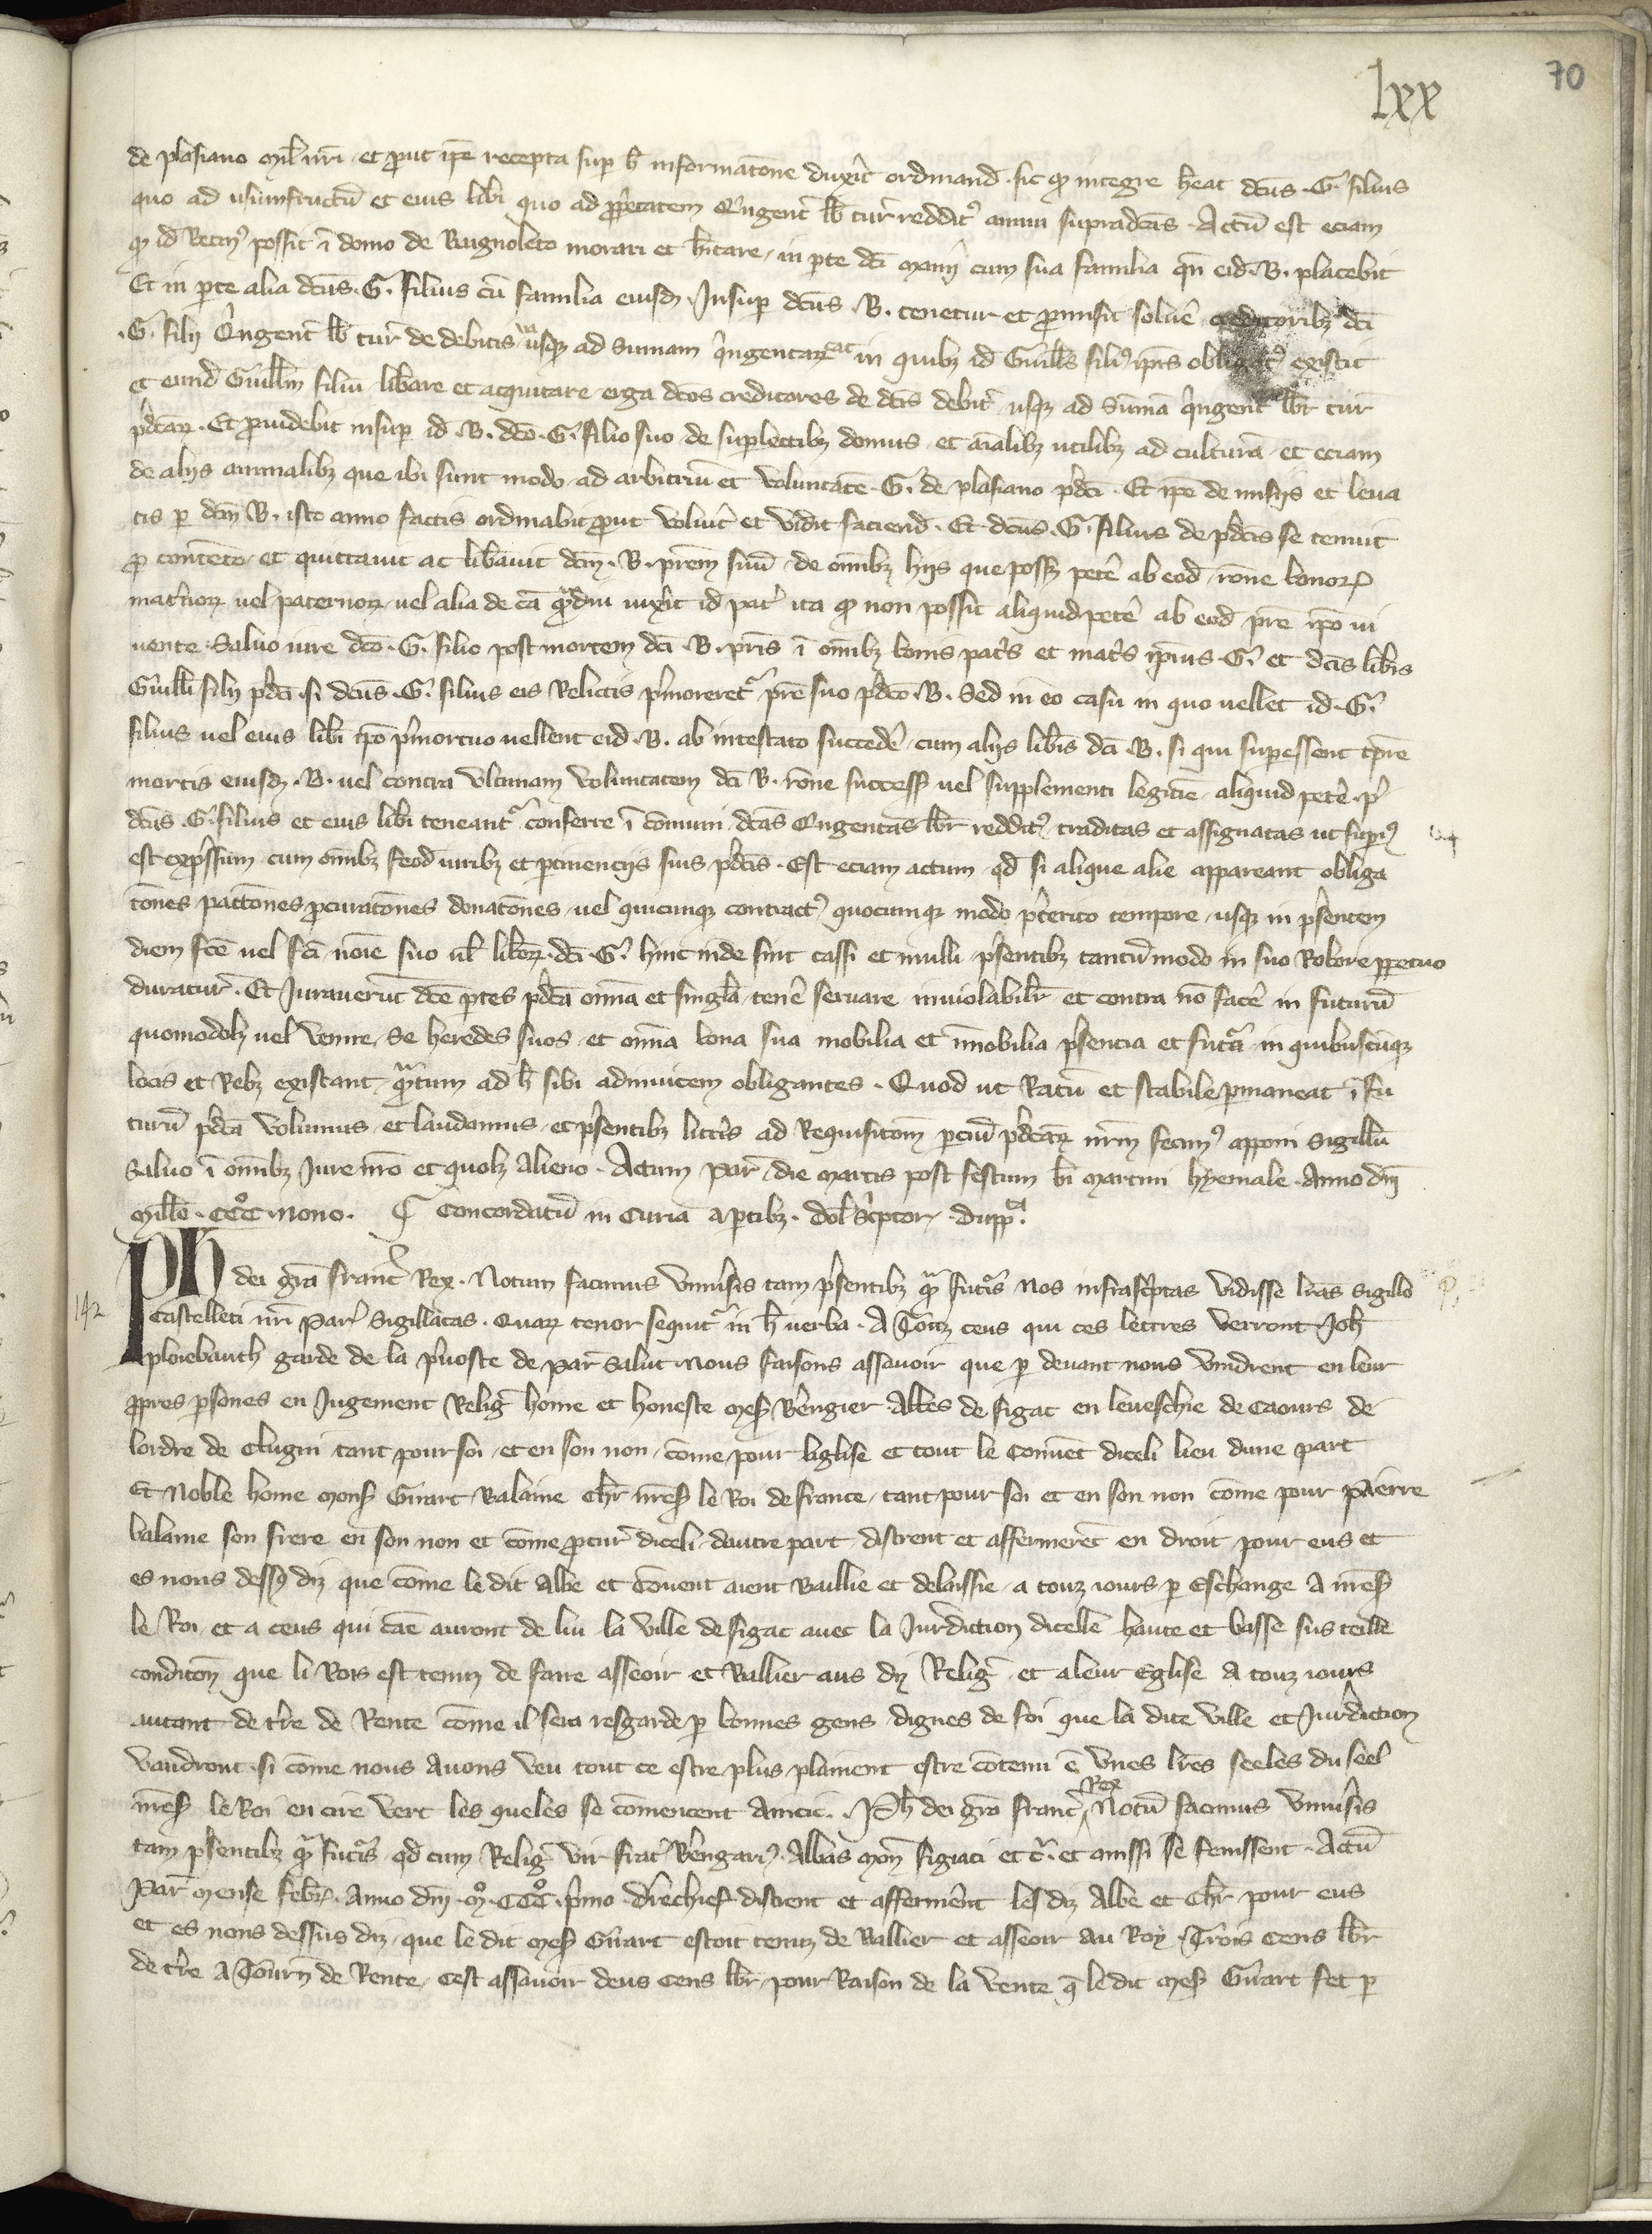 lxx
70
de plasiano mil̃ nr̃i et ꝓut ip̃e recepta sup̱ h̃ informat̃one duxĩt ordinand̃ sic ꝙ integre h̃eat dc̃us .G. filius
quo ad usumfructũ et eius lib̃i quo ad ꝓp̃etatem Qi̇ngent̃ lb̃ tur̃ reddit9 annui supradc̃is . Actũ est eciam
ꝙ id̃ Bert̃n9 possit ĩ domo de Rugnoleto morari et h̃itare / in ꝑte dc̃i man̾ij cum sua familia qn̄ eid̃ .B. placebit
Et in ꝑte alia dc̃us .G. filius cũ familia eiusd̃ . Insuꝑ dc̃us .B. tenetur et ꝓmisit solũe creditoribꝫ dc̃i
.G. filij Qi̇ngent̃ lb̃ tur̃ de debitis usqꝫ ad sum̃am qi̇ngentaꝝ in quibꝫ id̃ Guill̃s fili9 ip̃is obligat9 existit
et eund̃ Guill̃m filiũ lib̃are et acquitare erga dc̃os creditores de dc̃is debit̃ usqꝫ ad sum̃ã qi̇ngent̃ lb̃r tur̃
p̃dc̃aꝝ . Et ꝓuidebit insuꝑ id̃ .B. dc̃o .G. filio suo de suꝑlectibꝫ domus / et aĩalibꝫ utilibꝫ ad culturã et eciam
de alijs animalibꝫ que ibi sunt modo ad arbitriũ et voluntatẽ .G. de plasiano p̃dc̃i . Et ip̃e de misijs et leua
tis ꝑ dc̃m .B. isto anno factis ordinabit ꝓut voluĩt et vid̾it faciend̃ . Et dc̃us .G. filius de p̃dc̃is se tenuit
ꝓ contẽto et quittauit ac lib̃auit dc̃m .B. pr̃em suũ de om̃ibꝫ hijs que posꝫ pet̃e ab eod̃ rõne bonoꝝ
mat̃noꝝ vel paternoꝝ / vel alia de cã qᵃ̃diu vix̃it id̃ pat̃ ita ꝙ non possit aliquid pet̃e ab eod̃ pr̃e ip̃o ui
uente . Saluo iure dc̃o .G. filio post mortem dc̃i .B. pr̃is ĩ om̃ibꝫ bonis pat̃s et mat̃s ip̃ius .G. et dc̃is lib̃is
Guill̃i filij p̃dc̃i . si dc̃us .G. filius eis Relictis p̃moreretᵘ̃ pr̃e suo p̃dc̃o .B. Sed in eo casu in quo uellet id̃ .G.
filius uel eius lib̃i ip̃o p̃mortuo uellent eid̃ .B. ab intestato succed̃e / cum alijs lib̃is dc̃i .B. si qui suꝑessent tp̃re
mortis eiusd̃ .B. uel contra vltimam voluntatem dc̃i .B. rõne success̃ vel supplementi legitĩe aliquid pet̃e . p̃
dc̃us .G. filius et eius lib̃i teneantᵘ̃ conferre ĩ cõmuni dc̃as Qi̇ngentas lb̃r reddit9 traditas et assignatas ut suꝑi9
est exp̃ssum cum om̃ibꝫ feod̃ iuribꝫ et ꝑtinencijs suis p̃dc̃is . Est eciam actum qd̃ si alique alie appareant obliga
t̃ones pact̃ones ꝓcurat̃ones donat̃ones / vel quicunqꝫ contract9 quocunqꝫ modo p̃terito tempore / usqꝫ in p̃sentem
diem fc̃e vel fc̃i noĩe suo ul̃ lib̃oꝝ dc̃i .G. hinc inde sint cassi et nulli / p̃sentibꝫ tantũmodo in suo Robore ꝑpetuo
duratur̃ . Et Jurauerũt dc̃e ꝑtes p̃dc̃a om̃ia et singl̃a ten̾e seruare inuiolabilit̃ et contra nõ fac̾e in futurũ
quomodolꝫ uel venire / se heredes suos et om̃ia bona sua mobilia et im̃obilia p̃sencia et futᵃ̃ in quibuscũqꝫ
locis et Rebꝫ existant qᵃ̃tum ad h̃ sibi adinuicem obligantes . Quod ut Ratũ et stabile ꝑmaneat ĩ fu
turũ p̃dc̃a volumus et laudamus / et p̃sentibꝫ litt̃is ad Requisit̃om ꝑtiũ p̃dc̃aꝝ nr̃m fecim9 apponi sigillũ
saluo ĩ om̃ibꝫ Jure nr̃o et quolꝫ alieno . Actum par̃ die martis post festum bi̇ martini hyemale . Anno dñi
Mill̃o . CCC̊ nono . ¶ Concordatũ in Curia a ꝑtibꝫ . dol̃ sc̾ptor . duppᵃ .
Ph̃ dei grã Franc̃ Rex . Notum facimus vniũsis tam p̃sentibꝫ qᵃ̃ futᵘ̃is Nos infrasc̾ptas vidisse lr̃as sigillo
142
Castelleti nr̃i Par̃ sigillatas . Quaꝝ tenor sequitᵘ̃ in h̃ uerba . A Touz ceus qui ces lettres verront Joh̃
ploiebauch garde de la p̃uoste de par̃ salut . Nous faisons assauoir que ꝑ deuant nous vindrent en leur
ꝓpres ꝑsones en Jugement Relig̃ home et honeste mes̃ B̃engier Abbes de figac en leueschie de Caours de
lordre de Clugni tant pour soi et en son non / cõme pour leglise et tout le Conuẽt diceli lieu dune part
Et Noble home mons̃ Gũart Balaine Chr̃ nr̃es̃ le Roi de france / tant pour soi et en son non cõme pour pierre
balaine son frere en son non et cõme ꝓcur̃ diceli dautre part / distrent et affermerẽt en droit pour eus et
es nons dess9 diz que cõme le dit Abbe et Cõuent aient Baillie et delaissie a touz iours ꝑ Eschange a nr̃es̃
le Roi et a ceus qui cãe auront de lui la ville de figac auec la Jur̃diction dicelle haute et basse sus teille
condit̃on que li Rois est tenuz de faire asseoir et Ballier aus diz Relig̃ et a leur Eglise a touz iours
autant de tr̃e de Rente cõme il sera resgarde ꝑ bonnes gens dignes de foi que la dite ville et Jur̃diction
vaudront si cõme nous auons veu tout ce estre plus plainem̃t estre cõtenu ẽ vnes lr̃es seelees du seel
nr̃es̃ le Roi en cire vert les queles se cõmencent ainsi . Ph̃ dei grã franc̃ Rex Notũ facimus vniũsis
tam p̃sentibꝫ qᵃ̃ futᵘ̃is qd̃ cum Relig̃ vir frat̃ B̃engari9 Abbas mon̾ figiaci et c̃ . et ainssi se fenissent . Actũ
Par̃ mense feb̾r . Anno dñi . M̊ . CCC̊ . p̃mo . Derechief distrent et affermẽnt les diz Abbe et Chr̃ pour eus
et es nons dessus diz / que le dit mes̃ Gũart estoit tenuz de Ballier et asseoir au Roy . Trois Cens lb̃r
de tr̃e a Tourñ de Rente / cest assauoir deus Cens lb̃r pour Raison de la vente q̃ le dit mes̃ Gũart fet ꝑ